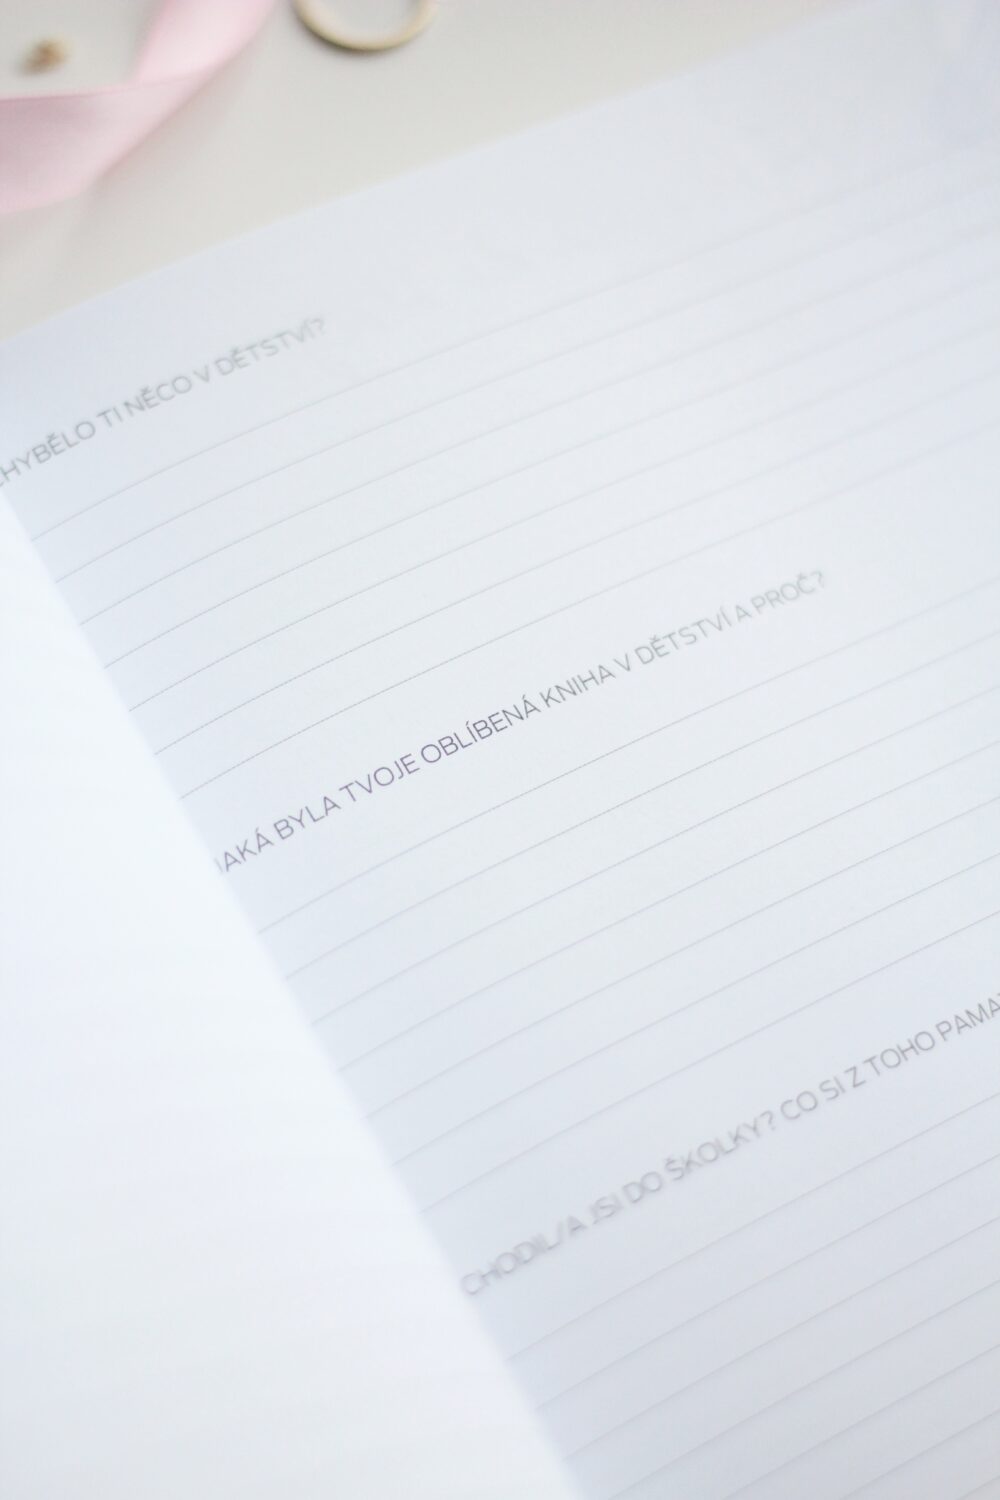 CHYBĚLO TI NĚCO V DĚTSTVÍ?
JAKÁ BYLA TVOJE OBLÍBENÁ KNIHA V DĚTSTVÍ A PROČ?
CHODIL/A JSI DO ŠKOLKY? CO SI Z TOHO